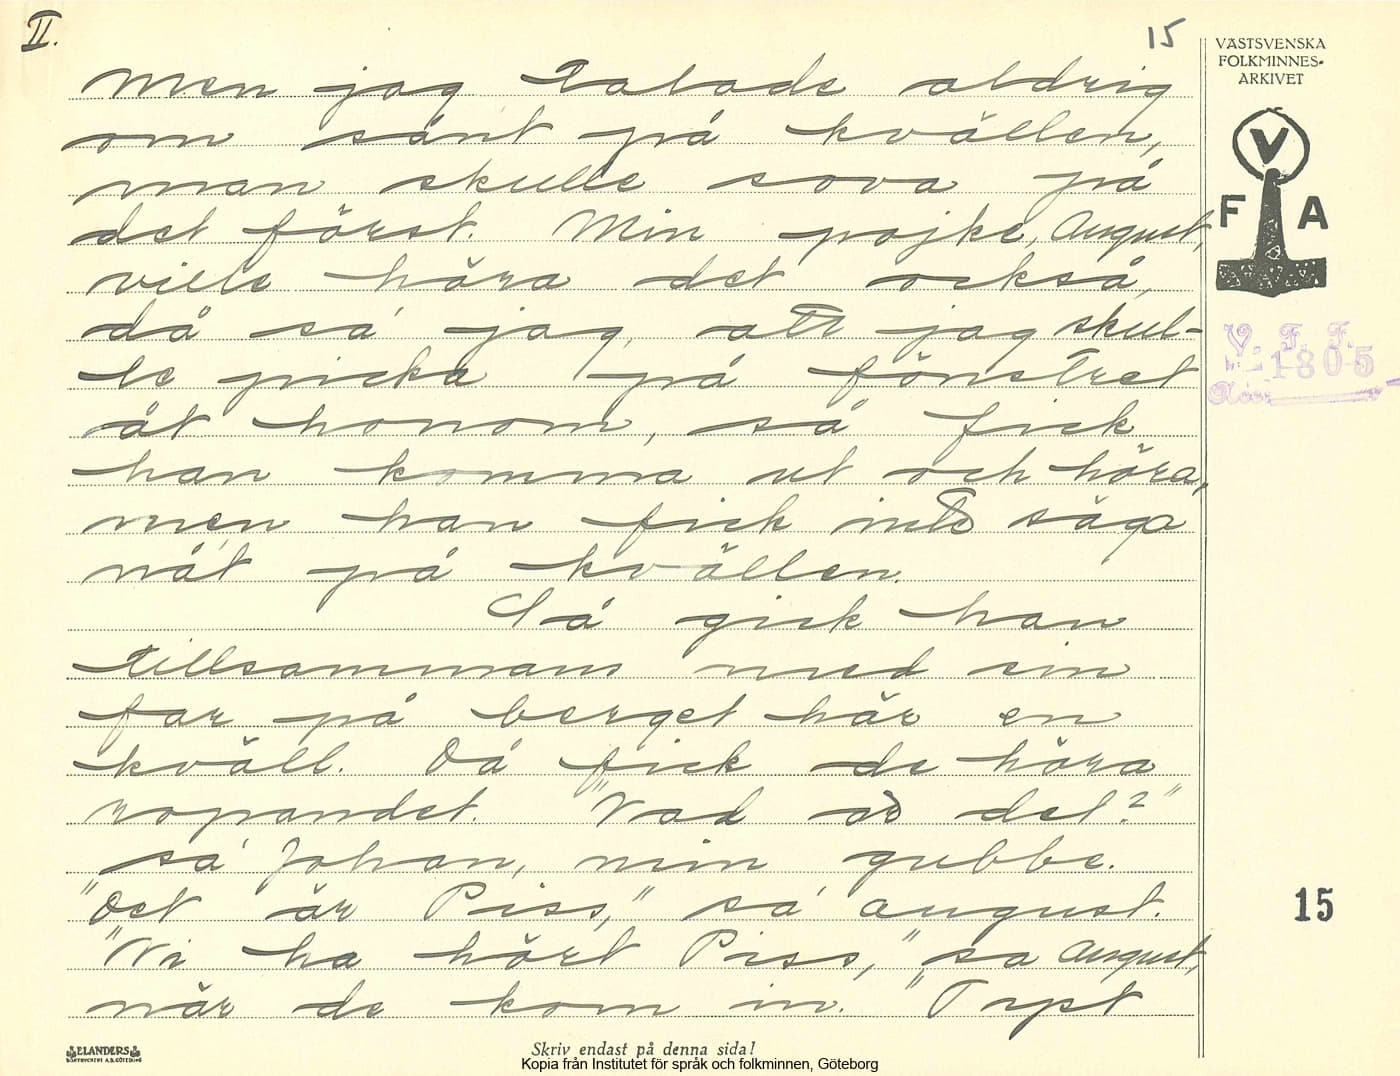 II.
15
VÄSTSVENSKA
FOLKMINNES-
ARKIVET
V
F A
Men jag talade aldrig
om sånt på kvällen,
man skulle sova på
det först. Min pojke, August,
ville höra det också,
då sa' jag, att jag skul-
le picka på fönstret
åt honom, så fick
han komma ut och höra,
men han fick inte säga
nåt på kvällen.
Så gick han
tillsammans med sin
far på berget här en
kväll. Då fick de höra
ropandet. "Vad ä' det?"
sa' Johan, min gubbe.
"Det är Piss," sa' August.
"Vi ha hört Piss," sa August,
när de kom in. "Tyst
V. F. F.
1805
15
ELANDERS
Skriv endast på denna sida!
Kopia från Institutet för språk och folkminnen, Göteborg